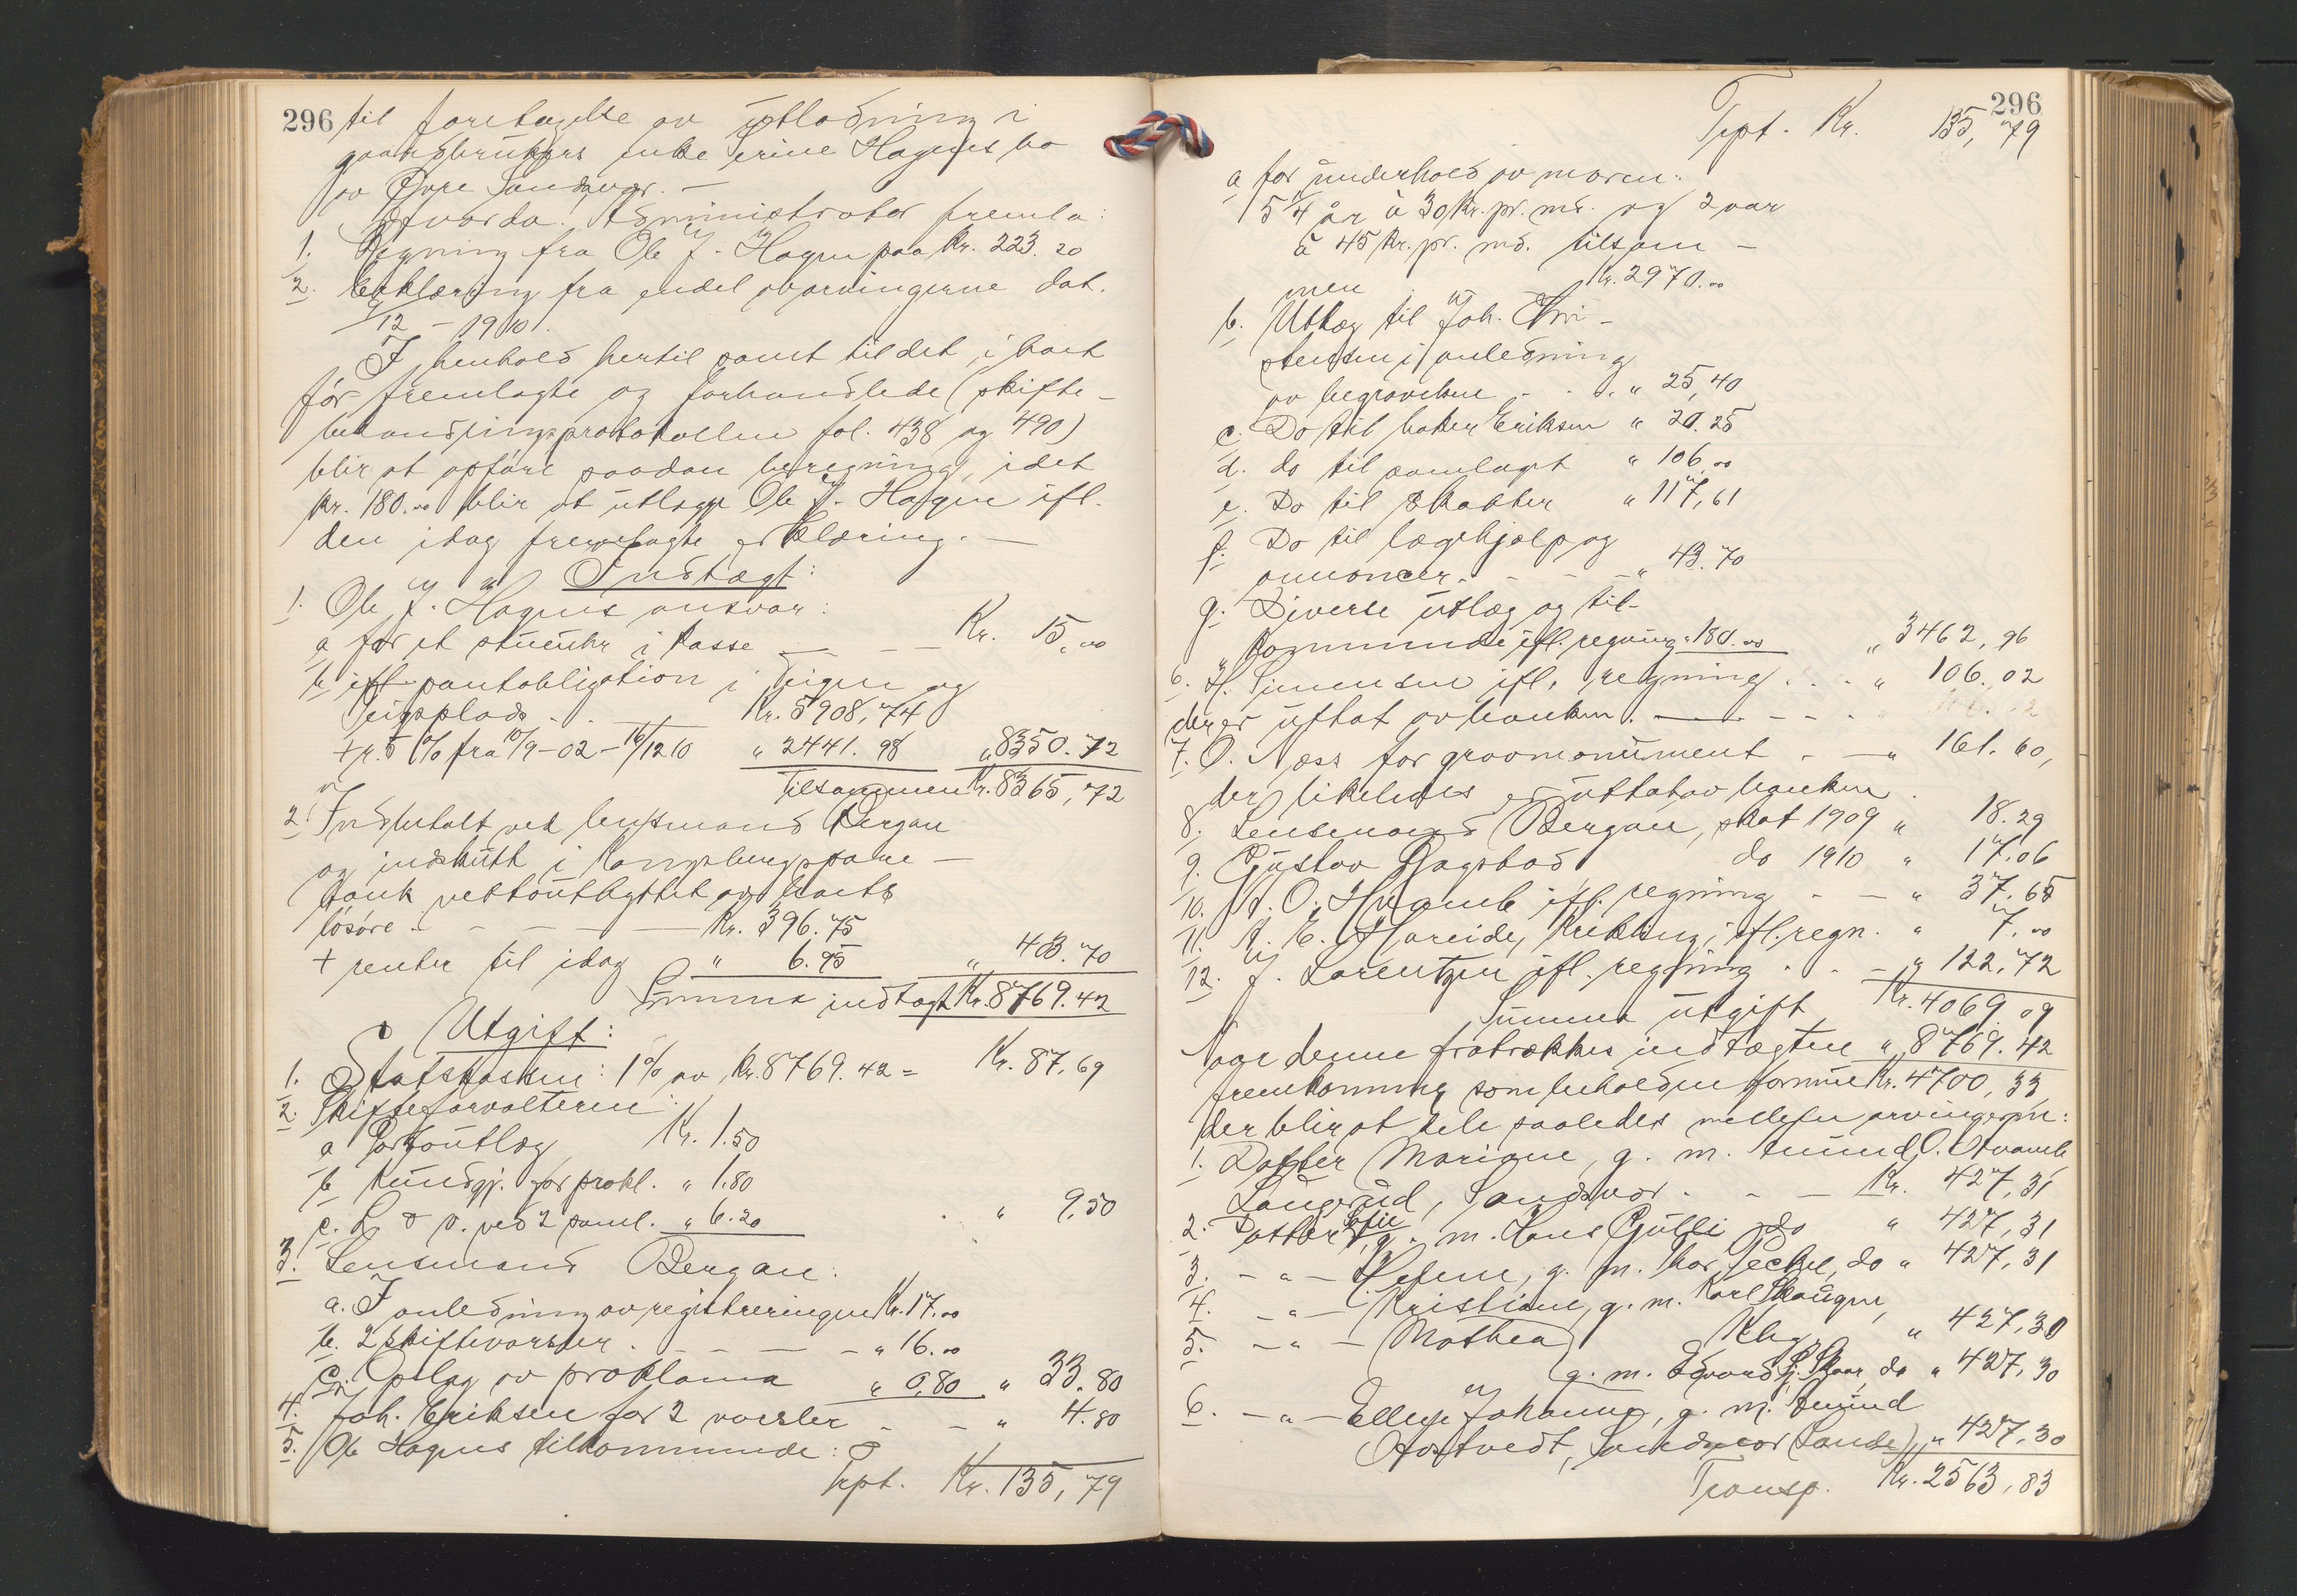 296 til foretagelse av utlodning i
gaardbrukers enke Serine Hagens bo
av Øvre Sandsvær. —
Hvorda: Administrator fremla:
1. Regning fra Ole J. Hagen paa Kr. 223.20
2. Erklæring fra endel av arvingerne dat.
9/12 - 1910.
I henhold hertil samt til det i boet
før fremlagte og forhandlede (skifte-
behandlingsprotokollen fol. 438 og 490)
blir at opføre saadan beregning, idet
Kr. 180.00 blir at utlægge Ole J. Hagen ifl.
den idag fremlagte erklæring. —
Indtægt:
1. Ole J. Hagens ansvar:
a for et stueuhr i kasse — — — Kr. 15.00
b ifl. pantobligation i Teigen og
Teigsplads . . — Kr. 5908,74
+ r. 5 % fra 10/9-02 - 16/12 10 " 2441.98 " 8350.72
Tilsammen Kr. 8365,72
2. Indbetalt ved lensmand Bergan
og indskutt i Kongsberg spare-
bank nettoutbyttet av boets
løsøre . — — — — Kr. 396.75
+ renter til idag " 6.95 " 403.70
Summa indtægt Kr. 8769.42
Utgift:
1. Statskassen: 1 % av Kr. 8769.42 = Kr. 87,69
2. Skifteforvalteren:
a Portoutlæg Kr. 1.50
b Kundgj. for prokl. " 1.80
c. L & D. ved 2 saml. " 6.20 . " 9,50
3. Lensmand Bergan:
a. I anledning av registreringen Kr. 17.00
b. 2 skiftevarsler . — — — " 16.00
c. Opslag av proklama " 0,80 " 33.80
4. Joh. Eriksen for 2 varsler - - " 4.80
5. Ole Hagens tilkommende:
Trpt. Kr. 135,79
296
Trpt. Kr. 135,79
a for underhold av moren:
5 1/4 år à 30 Kr. pr. md. og 2 aar
à 45 Kr. pr. md. tilsam-
men Kr. 2970.00
b. Utlæg til Joh. Kri-
stensen i anledning
av begravelsen . . . " 25,40
c. Do til baker Eriksen " 20.25
d. do til samlaget " 106.00
e. Do til skatter " 117,61
f. Do til lægehjælp og
annoncer . - - - " 43.70
g. Diverse utlæg og til-
kommende ifl. regning " 180.00 " 3462,96
6. H. Simensen ifl. regning . . . " 106.02
der er uttat av banken. — - - .
7. O. Næss for gravmonument - — " 161.60,
der likeledes er uttat av banken.
8. Lensmand Bergan, skat 1909 " 18.29
9. Gustav do 1910 " 17.06
10. A. O. Hvamb ifl. regning - — " 37.65
11. K. E. Hareide, Krekling, ifl. regn. " 7.00
12. J. Lorentzen ifl. regning . . — " 122,72
Summa utgift Kr. 4069 09
Naar denne fratrækkes indtægten " 8769.42
fremkommer som beholden formue Kr. 4700,33
der blir at dele saaledes mellem arvingerne:
1. Datter Mariane, g. m. Amund O. Hvamb
Laugerud, Sandsvær . - — Kr. 427,31
2. Datter Sofie, g. m. Hans Gulli do " 427,31
3. — " — Helene, g. m. Thor do " 427,31
4. — " — Kristiane, g. m. Karl Skaugen,
Kbg. " 427,30
5. — " — Mathea
g. m. Edvard J. Skaar, do " 427,30
6. — " — Ellen Johanne, g. m. Amund
Aastvedt, Sandsvær (Sande), " 427.30
Transp. Kr. 2563,83